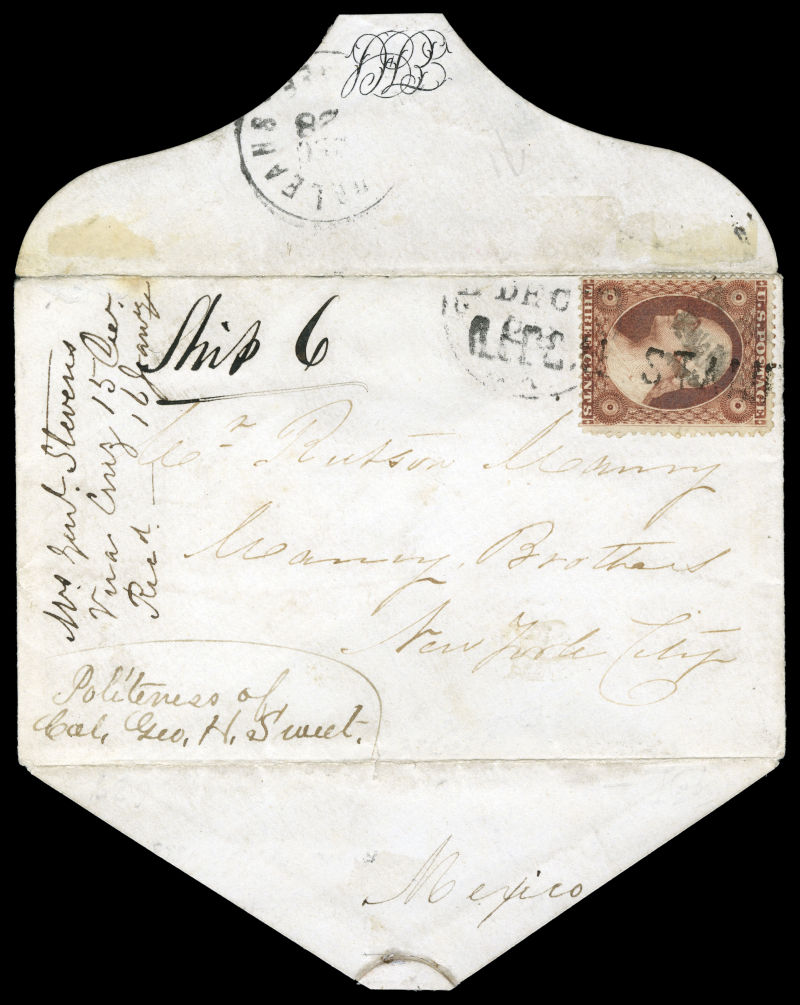 ORLEANS
28
Ship 6
U.S. POSTAGE
THREE CENTS
STEAM
Mrs Genl. Stevens
Vera Cruz 15 Dec.
Recd. 16 Jany
Mr. Rutson Maury
Maury Brothers
New York City
Politeness of
Col. Geo. H. Sweet.
Mexico